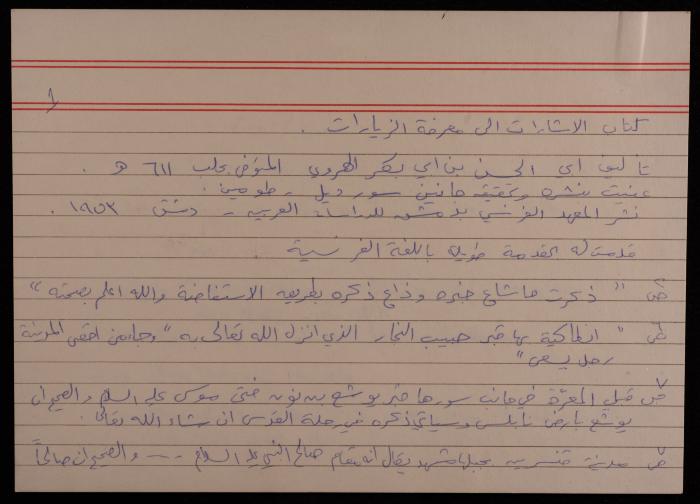 ١
كتاب الاشارات الى معرفة الزيارات .
تأليف ابي الحسن بن ابي بكر الهروي المتوفى بحلب ٦١١ هـ .
عنيت بنشره وتحقيقه جانين سورديل - طومين .
نشر المعهد الفرنسي بدمشق للدراسات العربية - دمشق ١٩٥٣ .
قدمت له بمقدمة طويلة باللغة الفرنسية .
ص " ذكرت ما شاع خبره وذاع ذكره بطريق الاستفاضة والله اعلم بصحته "
ص " انطاكية بها قبر حبيب النجار الذي انزل الله تعالى به " وجاء من اقصى المدينة
رجل يسعى "
ص ٧ قبلي المعرّة في جانب سورها قبر يوشع بن نون فتى موسى عليه السلام والصحيح ان
يوشع بارض نابلس وسيأتي ذكره في رحلة القدس ان شاء الله تعالى .
ص مدينة قنسرين بجبلها مشهد يقال انه مقام صالح النبي عليه السلام - - - والصحيح ان صالحاً